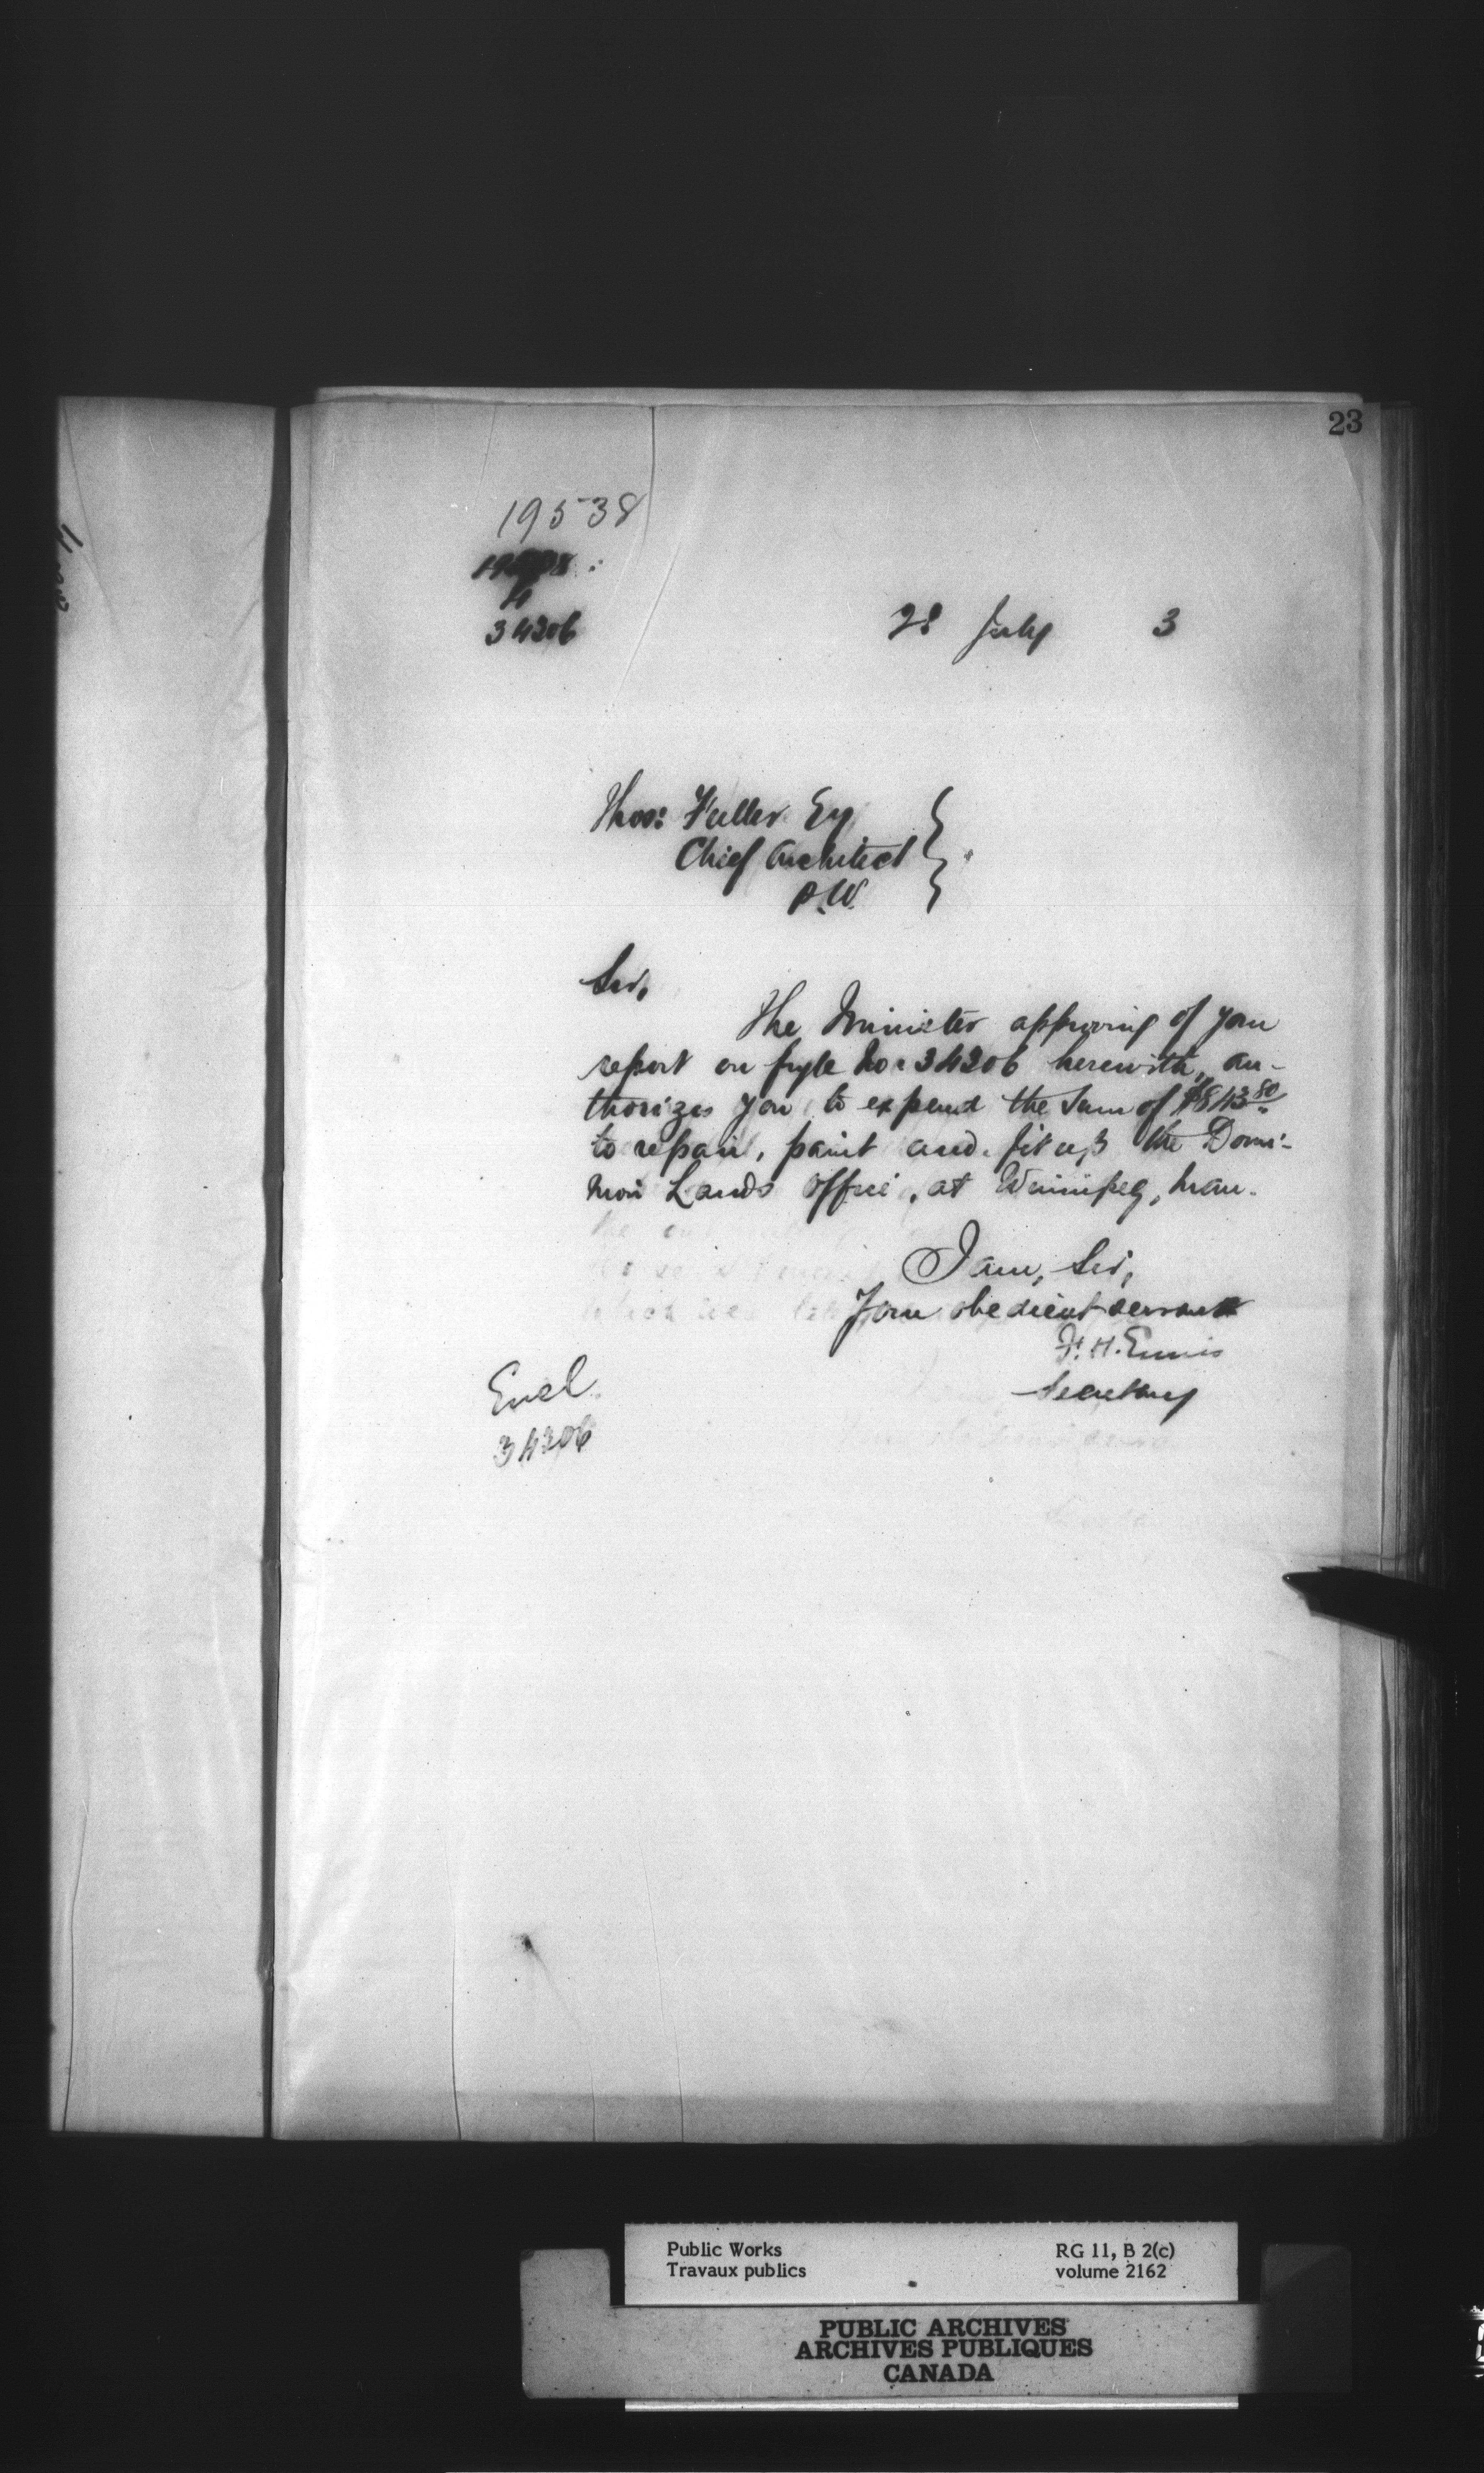 23
19538
34206
28 July 3
Thos: Fuller Esq
Chief Architect
P.W.
Sir,
The Minister approving of your
report on fyle No: 34206 herewith, au-
thorizes you to expend the sum of $843.80
to repair, paint and fit up the Domi-
nion Lands Office, at Winnipeg, Man.
I am, Sir,
Your obedient servant
F. H. Ennis
Secretary
Encl.
34206
Public Works
Travaux publics
RG 11, B 2(c)
volume 2162
PUBLIC ARCHIVES
ARCHIVES PUBLIQUES
CANADA